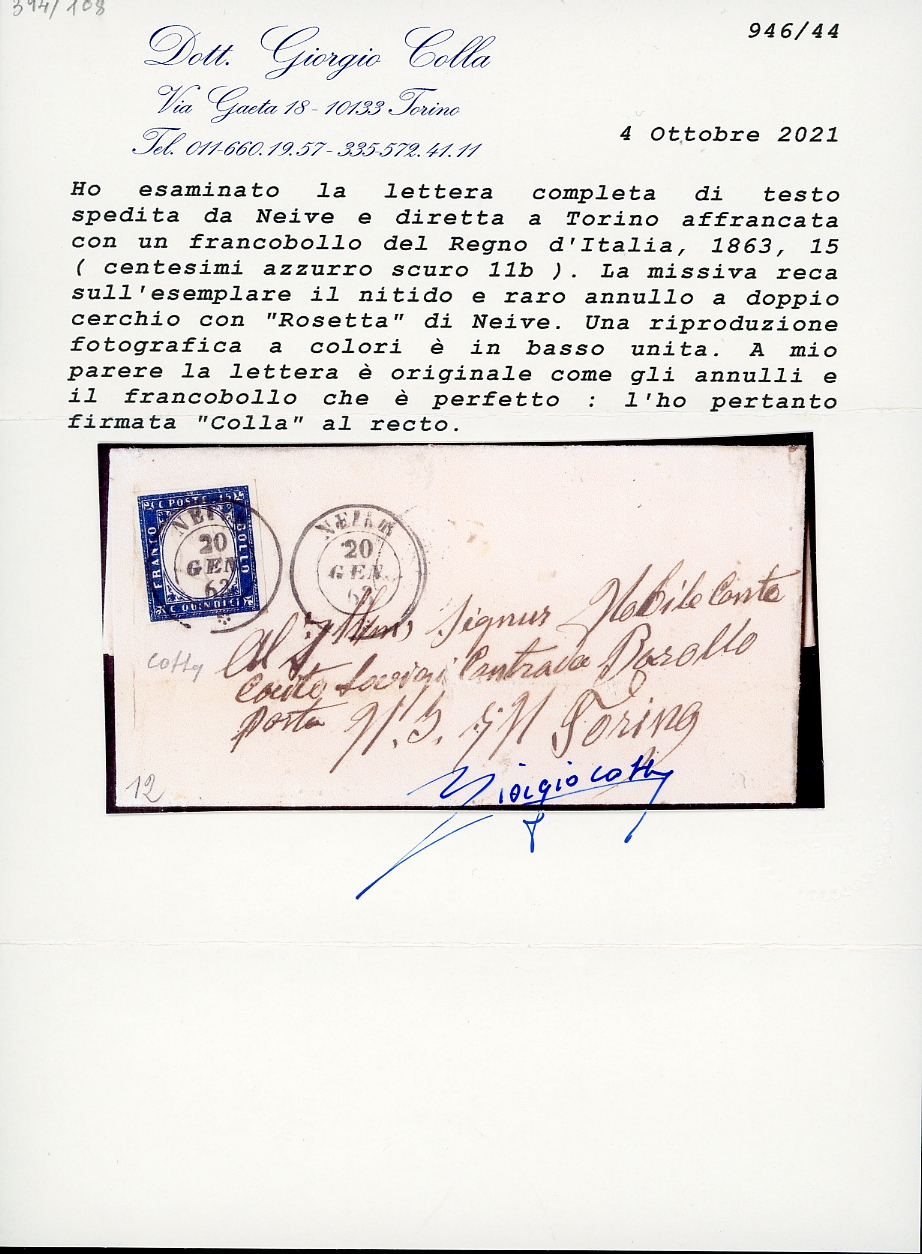 394/108
946/44
Dott. Giorgio Colla
Via Gaeta 18 - 10133 Torino
Tel. 011-660.19.57 - 335-572.41.11
4 Ottobre 2021
Ho esaminato la lettera completa di testo
spedita da Neive e diretta a Torino affrancata
con un francobollo del Regno d'Italia, 1863, 15
( centesimi azzurro scuro 11b ). La missiva reca
sull'esemplare il nitido e raro annullo a doppio
cerchio con "Rosetta" di Neive. Una riproduzione
fotografica a colori è in basso unita. A mio
parere la lettera è originale come gli annulli e
il francobollo che è perfetto : l'ho pertanto
firmata "Colla" al recto.
C POSTE 15
FRANCO
BOLLO
C QUINDICI
NEIVE
20
GEN
NEIVE
20
GEN
Al Signur Nobile Conte
Contrada Barollo
Porta N. 3. Torino
Colla
12
Giorgio Colla